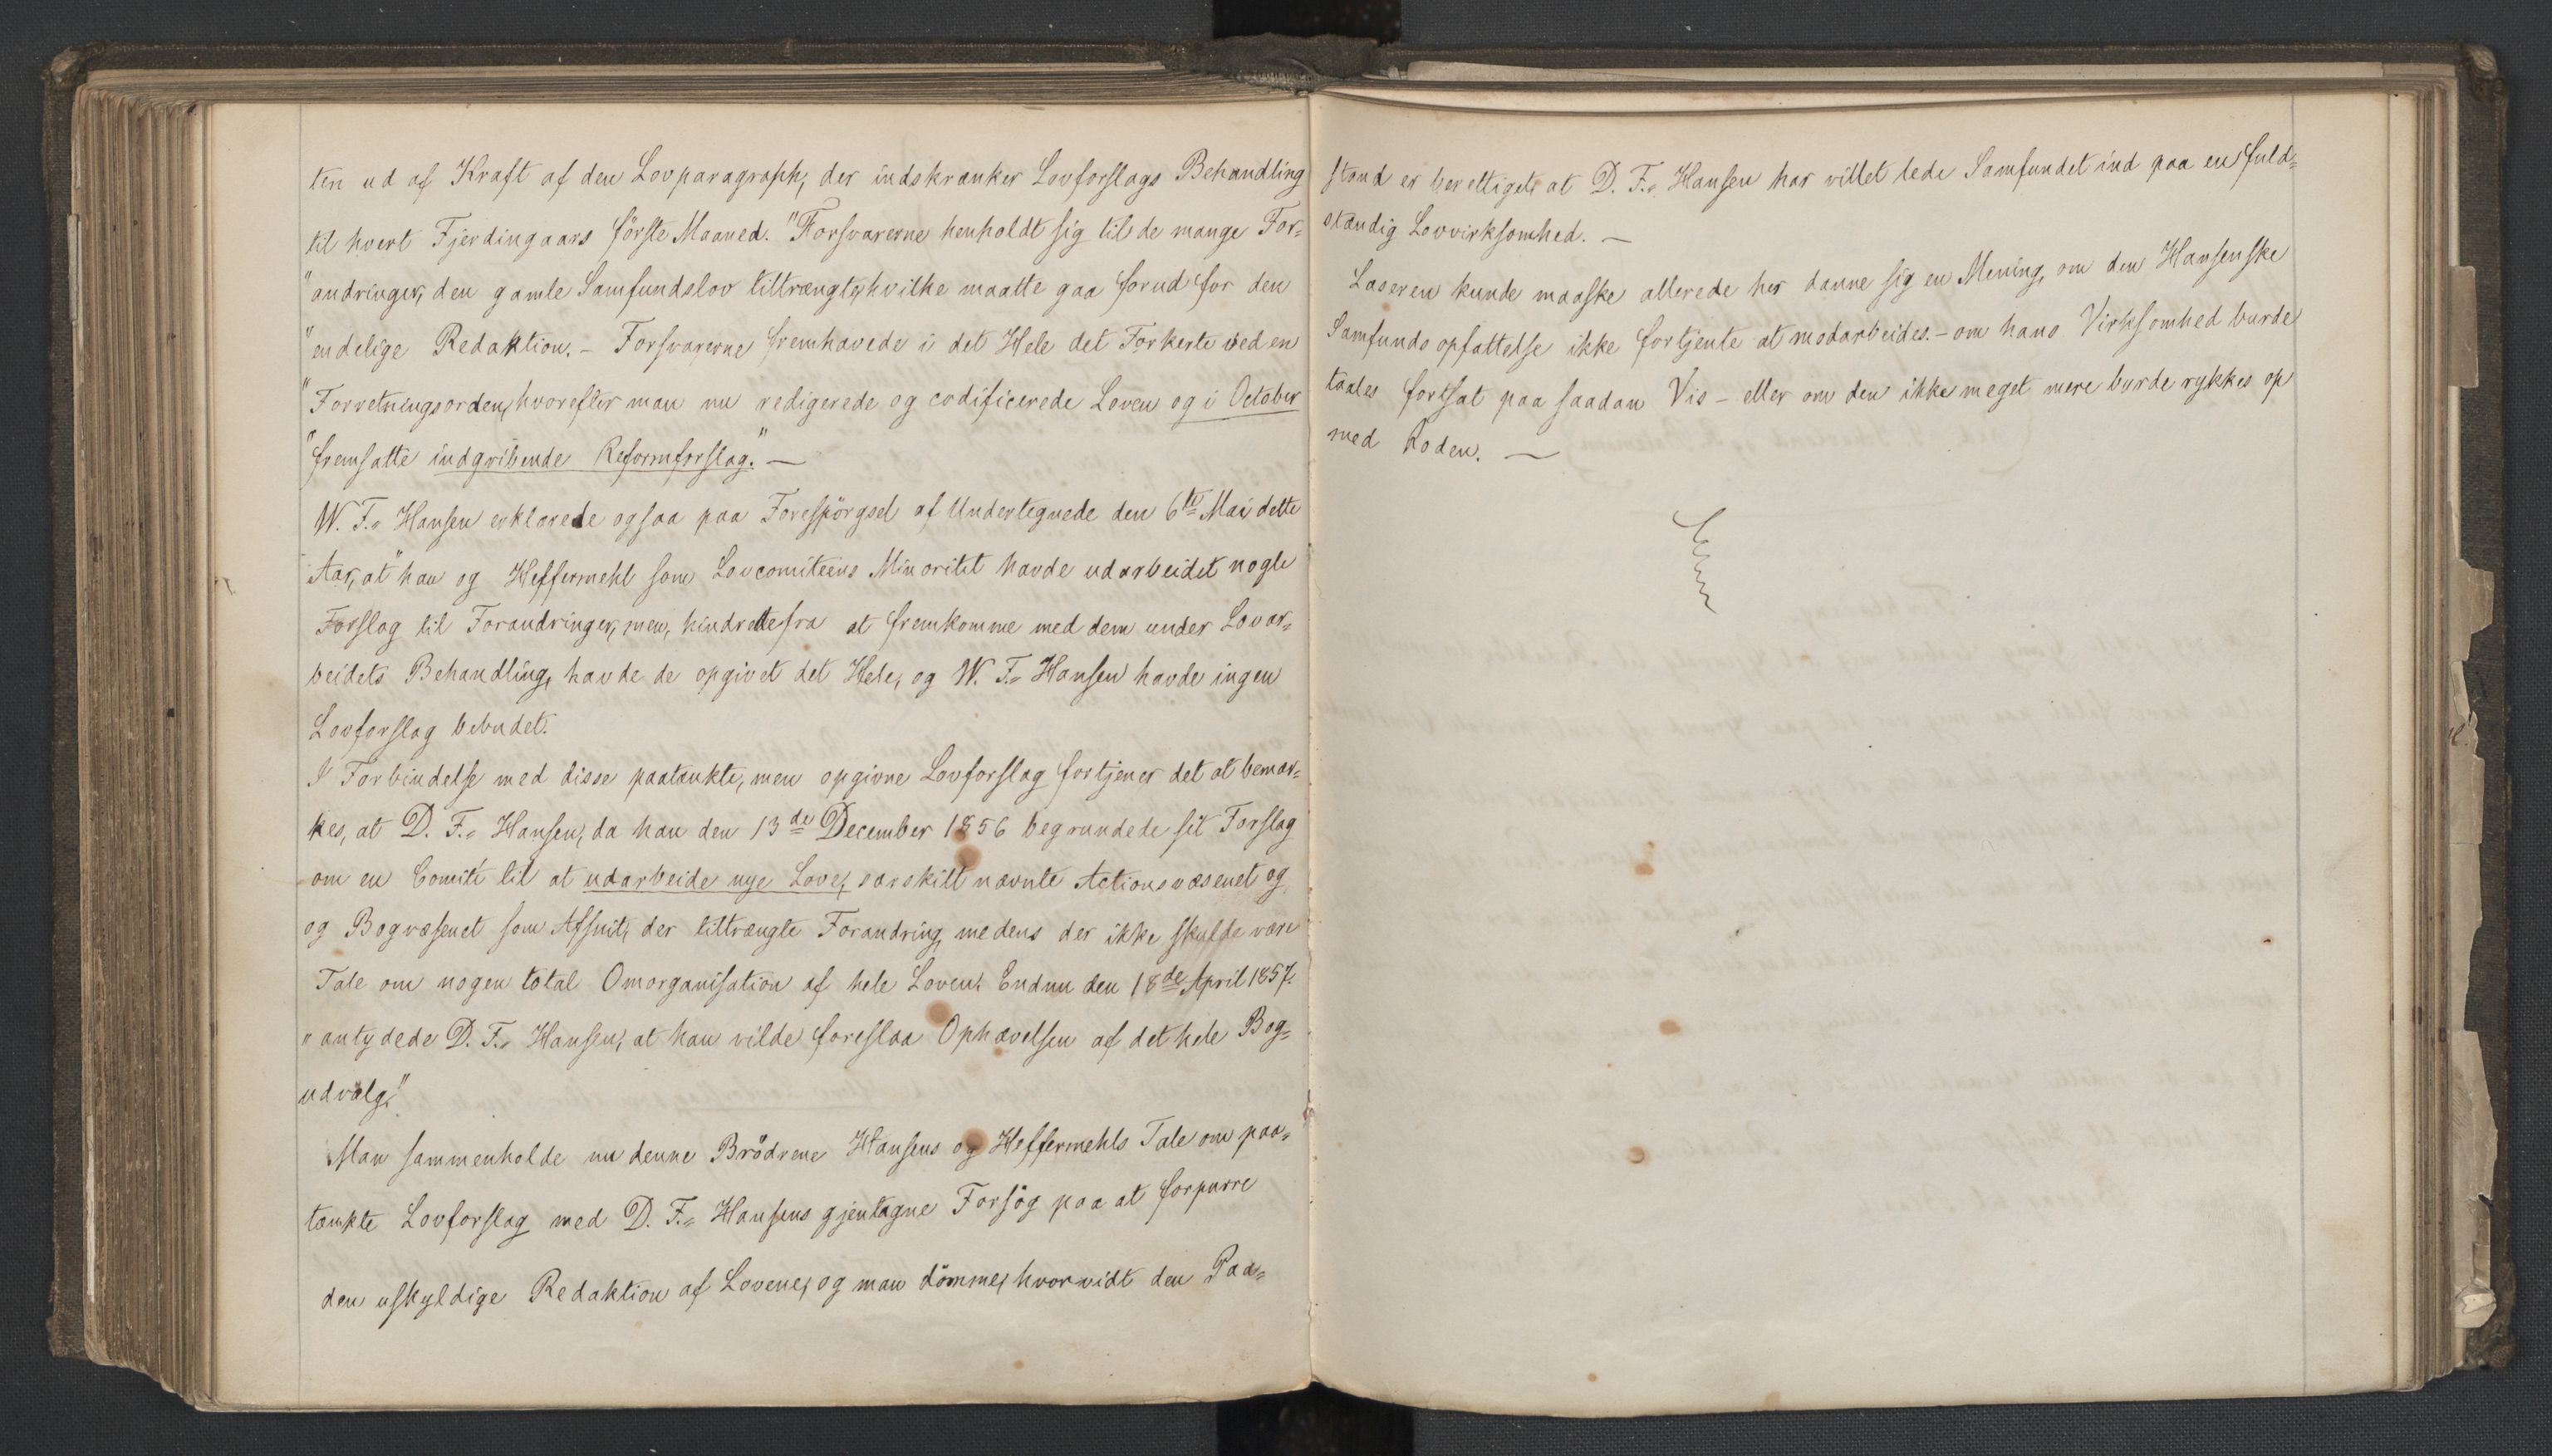 ten ud af Kraft af den Lovparagraph, der indskrænker Lovforslags Behandling
til hvert Fjerdingaars förste Maaned. "Forsvarerne henholdt sig til de mange For-
"andringer, den gamle Samfundslov tiltrængte, hvilke maatte gaa forud for den
"endelige Redaktion. - Forsvarerne fremhævede i det Hele det Forkerte ved en
"Forretningsorden, hvorefter man nu redigerede og codificerede Loven og i October
"fremsatte indgribende Reformforslag." —
W. F. Hansen erklærede ogsaa paa Forespörgsel af Undertegnede den 6te Mai dette
Aar, at "han og Heffermehl som Lovcomiteens Minoritet havde udarbeidet nogle
Forslag til Forandringer, men, hindrede fra at fremkomme med dem under Lovar-
beidets Behandling, havde de opgivet det Hele, og W. F. Hansen havde ingen
Lovforslag bebudet.
I Forbindelse med disse paatænkte, men opgivne Lovforslag fortjener det at bemær-
kes, at D. F. Hansen, da han den 13de December 1856 begrundede sit Forslag
om en Comité til at udarbeide nye Love, særskilt nævnte Actionsvæsenet og
og Bogvæsenet som Afsnit, der tiltrængte Forandring, medens der ikke skulde være
Tale om nogen total Omorganisation af hele Loven. Endnu den 18de April 1857.
"antydede D. F. Hansen, at han vilde foreslaa Ophævelsen af det hele Bog-
udvalg."
Man sammenholde nu denne Brödrene Hansens og Heffermehls Tale om paa-
tænkte Lovforslag med D. F. Hansens gjentagne Forsög paa at forpurre
den uskyldige Redaktion af Lovene, og man dömme, hvorvidt den Paa-
stand er berettiget, at D. F. Hansen har villet lede Samfundet ind paa en fuld-
stændig Lovvirksomhed. —
Læseren kunde maaske allerede her danne sig en Mening, om den Hansenske
Samfundsopfattelse ikke fortjente at modarbeides. - om hans Virksomhed burde
taales fortsat paa saadan Vis - eller om den ikke meget mere burde rykkes op
med Roden. —